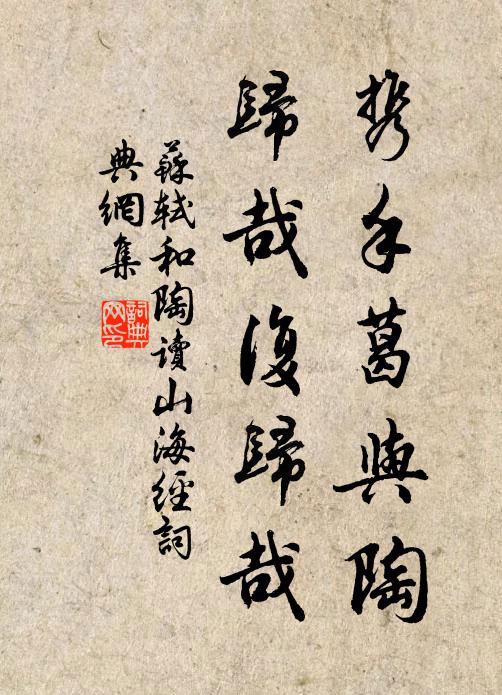 携手葛與陶
歸哉復歸哉
蘇軾和陶讀山海經詞
典網集
詞典網印